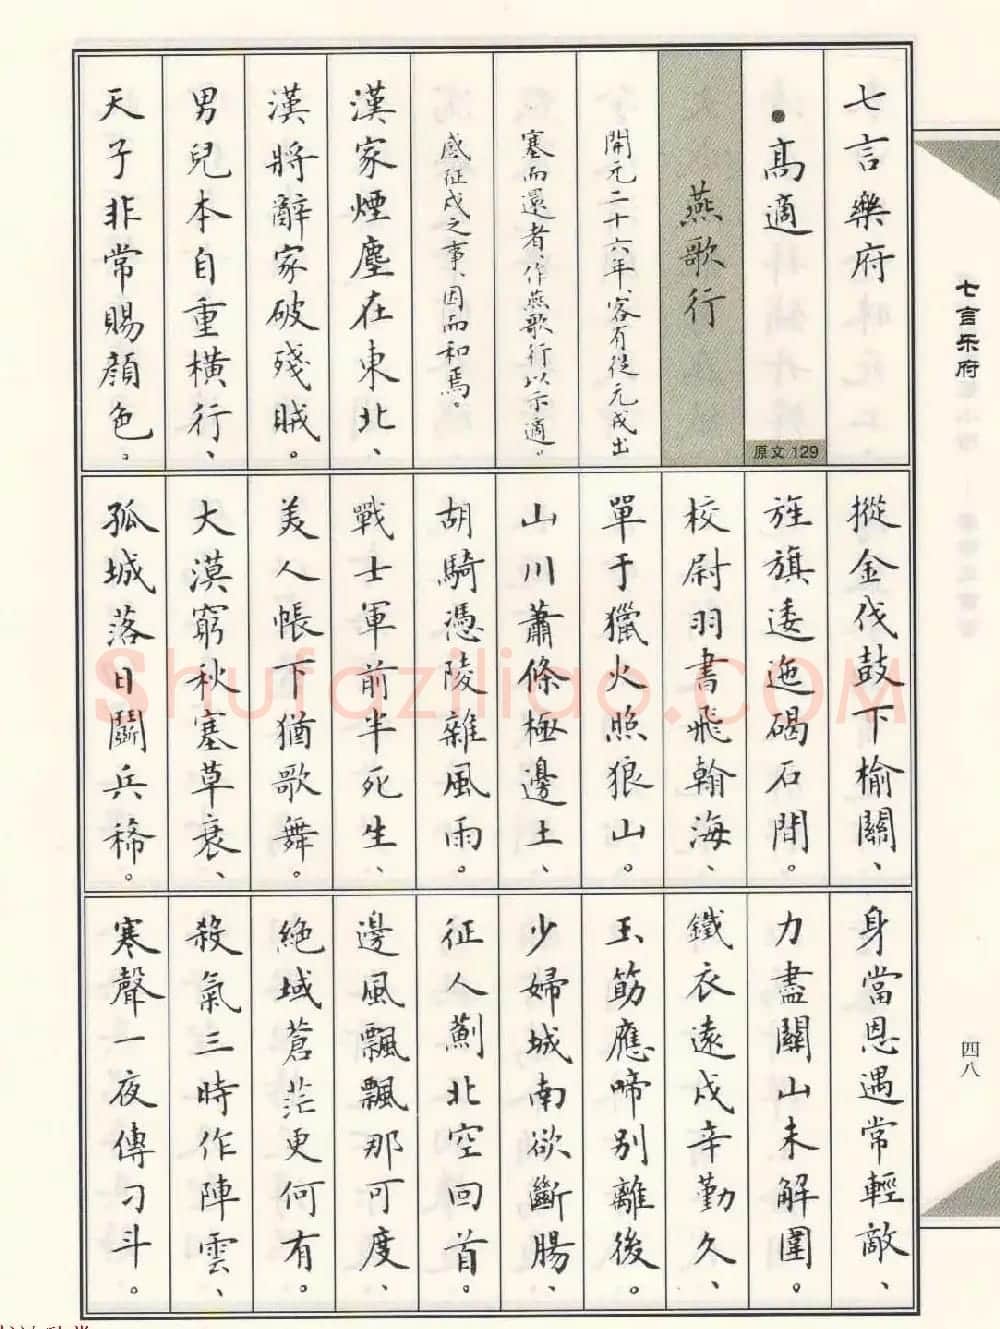 七言樂府
·高適
原文 129
燕歌行
開元二十六年、客有從元戎出
塞而還者、作燕歌行以示適。
感征戍之事、因而和焉。
漢家煙塵在東北、
漢將辭家破殘賊。
男兒本自重橫行、
天子非常賜顔色。
摐金伐鼓下榆關、
旌旗逶迤碣石間。
校尉羽書飛翰海、
單于獵火照狼山。
山川蕭條極邊土、
胡騎憑陵雜風雨。
戰士軍前半死生、
美人帳下猶歌舞。
大漠窮秋塞草衰、
孤城落日鬭兵稀。
身當恩遇常輕敵、
力盡關山未解圍。
鐵衣遠戍辛勤久、
玉筯應啼別離後。
少婦城南欲斷腸、
征人薊北空回首。
邊風飄飄那可度、
絕域蒼茫更何有。
殺氣三時作陣雲、
寒聲一夜傳刁斗。
七言乐府
四八
Shufaziliao.COM